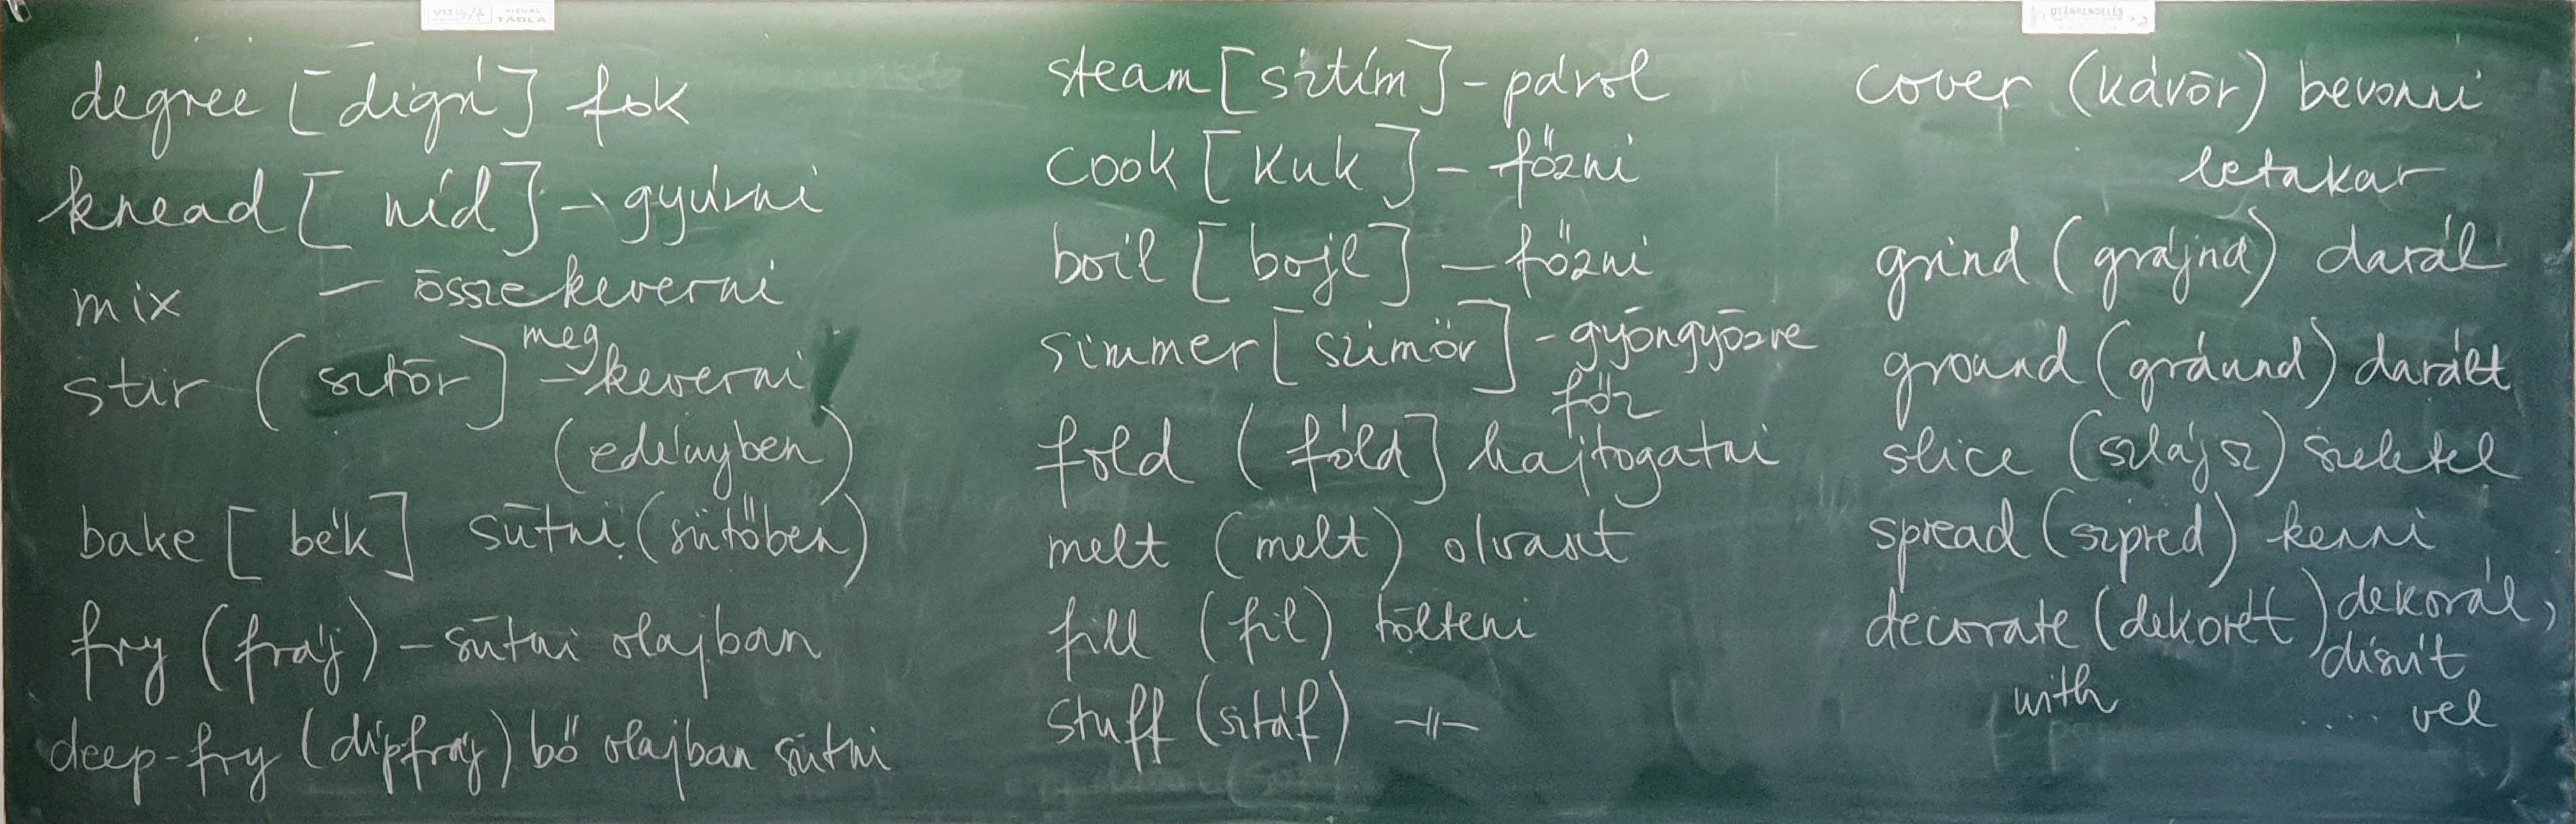 VISUAL
TÁBLA
UTÁNRENDELÉS
degree [digrí] fok
knead [níd] - gyúrni
mix - összekeverni
stir (sztőr] - megkeverni
(edényben)
bake [bék] sütni (sütőben)
fry (fráj) - sütni olajban
deep-fry (dípfráj) bő olajban sütni
steam [sztím] - párol
cook [kuk] - főzni
boil [bojl] - főzni
simmer [szimör] - gyöngyözve
főz
fold (fóld] hajtogatni
melt (melt) olvaszt
fill (fil) tölteni
stuff (sztáf) -||-
cover (kávör) bevonni
letakar
grind (grájnd) darál
ground (gráund) darált
slice (szlájsz) szeletel
spread (szpred) kenni
decorate (dekorét) dekorál,
díszít
with .... vel